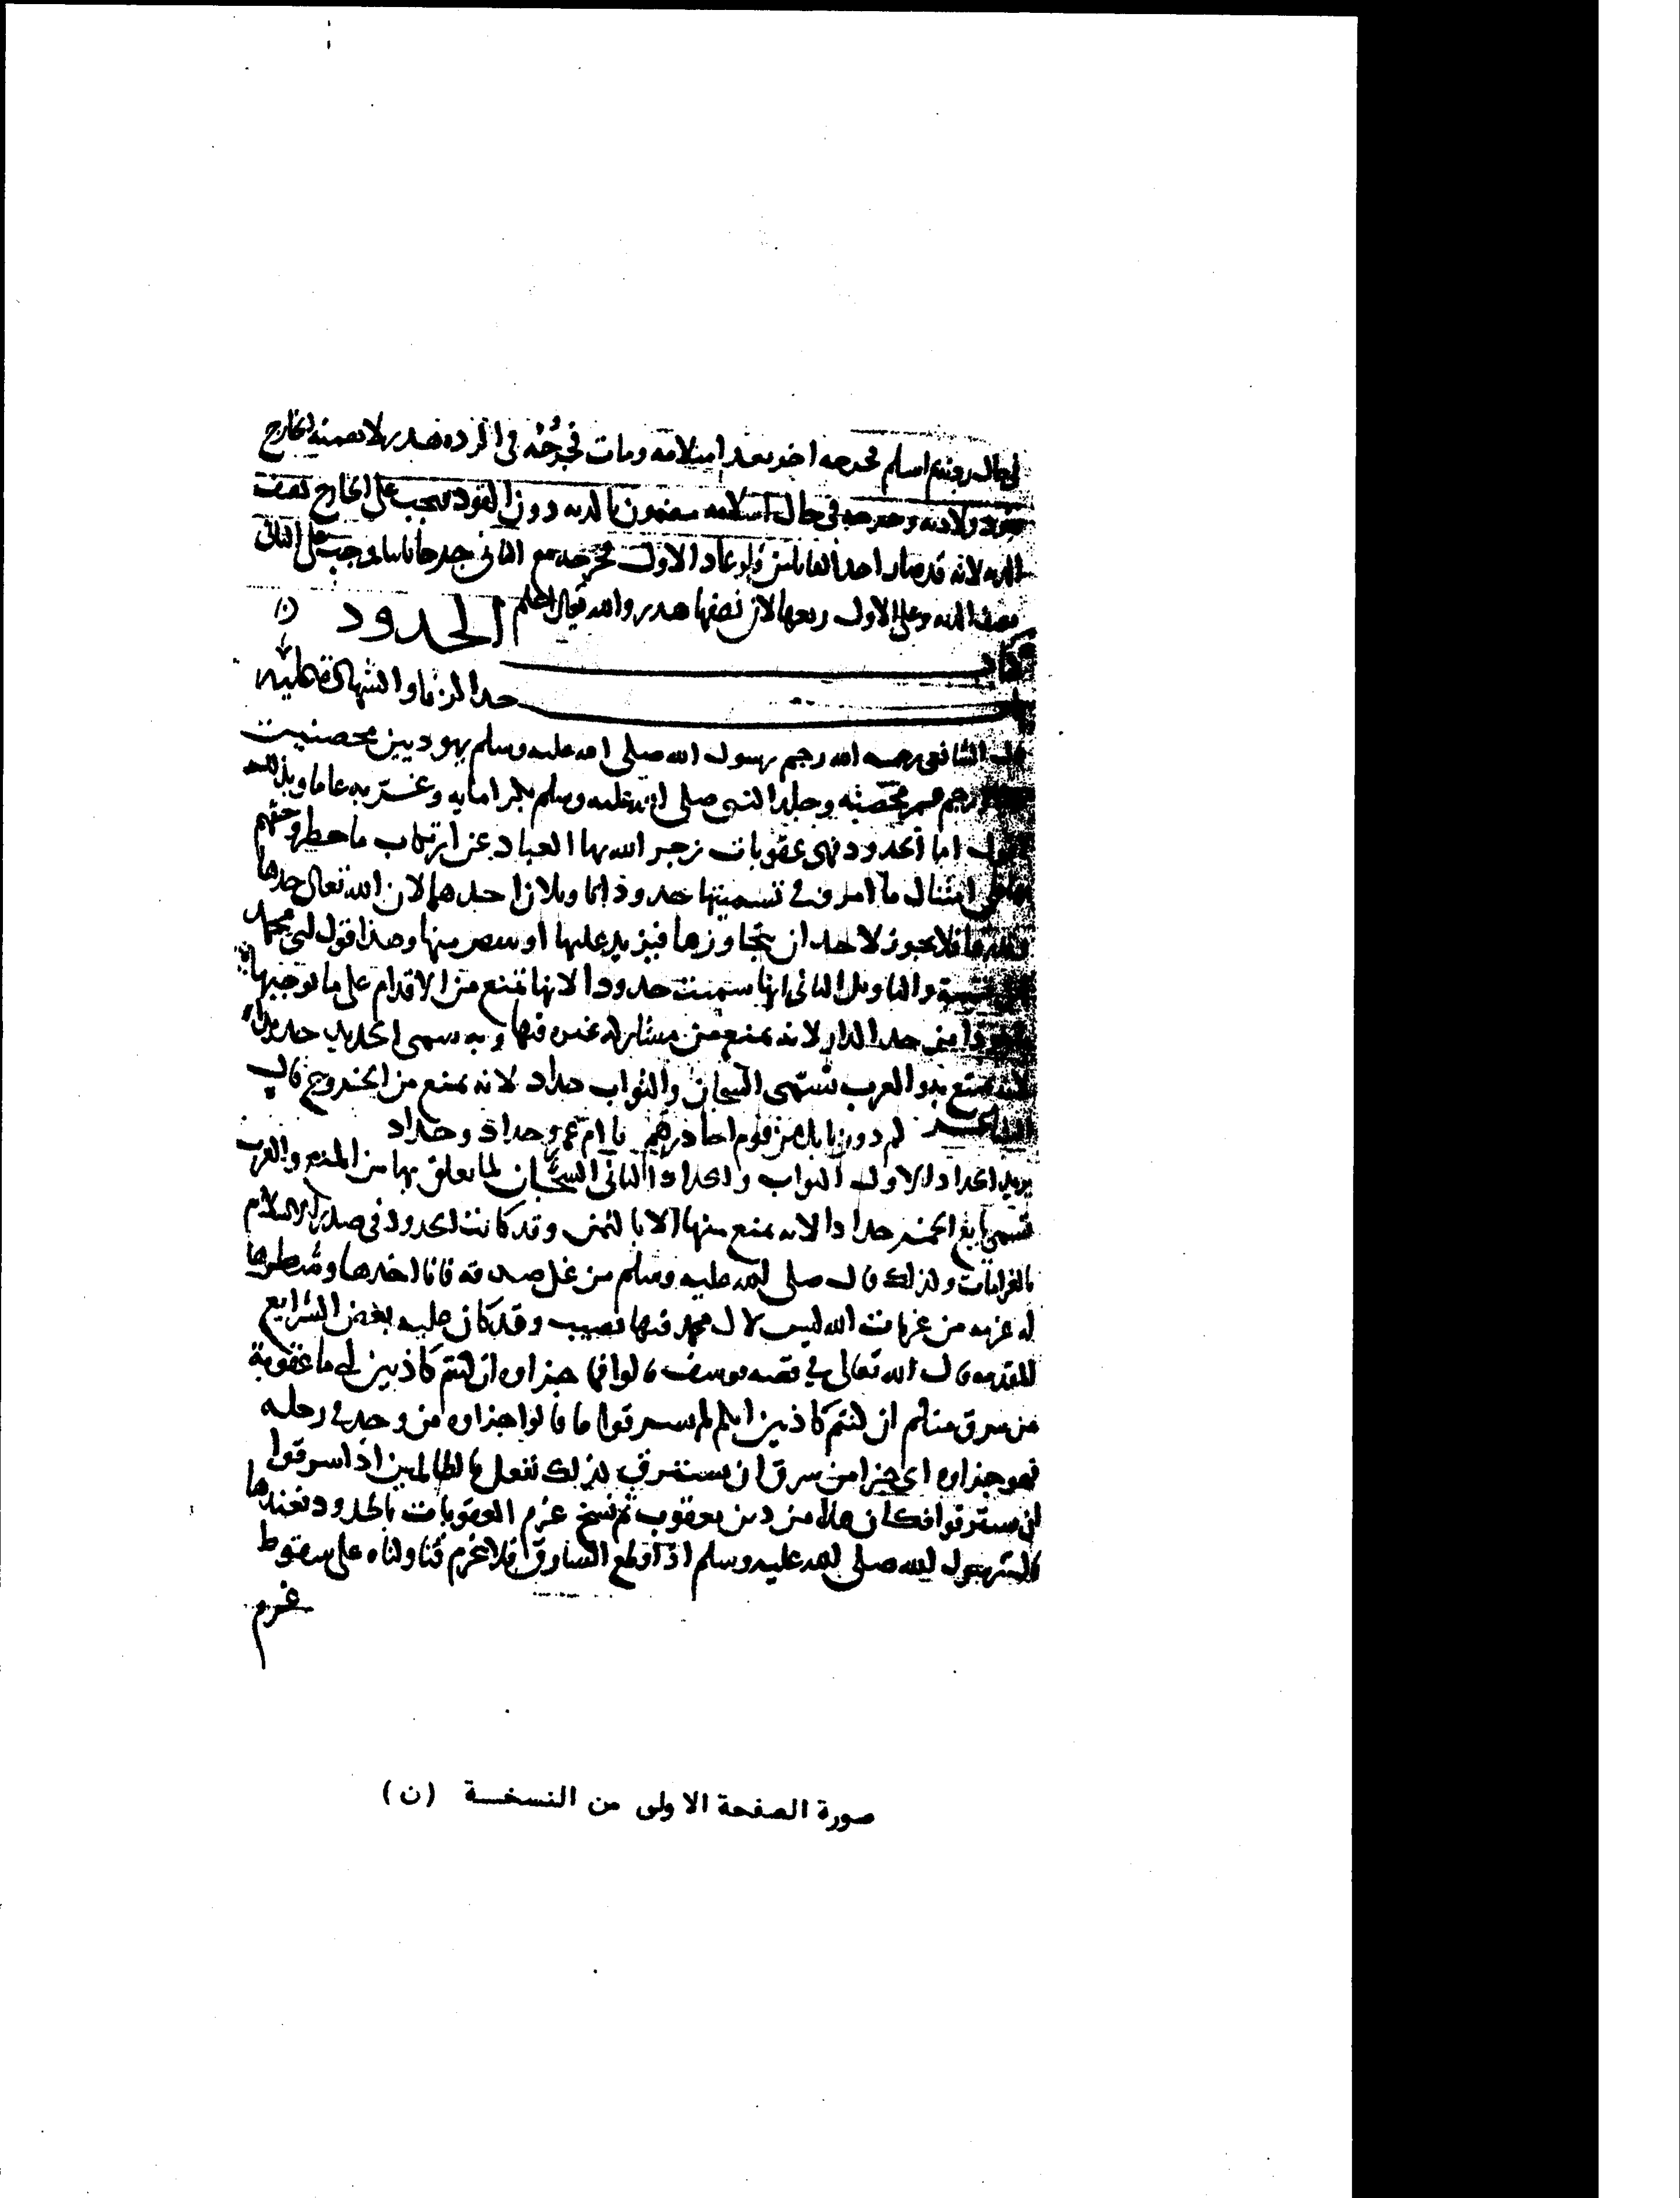 في حال ردته ثم اسلم فجرحه اخر بعد اسلامه ومات فجرحه في الرده هدر لا يضمنه الجارح
ولا ديه وجرحه في حال اسلامه مضمون بالديه دون القود فيجب على الجارح نصف
الديه لانه قد صار احد القاتلين ولو عاد الاول فجرحه مع الثاني جرحا ثانيا وجب على الثاني
نصف الديه وعلى الاول ربعها لان نصفها هدر والله تعالى اعلم
كتاب الحدود (ن)
باب حد الزنا والشهاده عليه
قال الشافعي رحمه الله رجم رسول الله صلى الله عليه وسلم يهوديين محصنين
ورجم عمر محصنه وجلد النبي صلى الله عليه وسلم بكرا مايه وغربه عاما وبذلك
اقول اما الحدود فهي عقوبات زجر الله بها العباد عن ارتكاب ما حظر وحثهم
على امتثال ما امر وفي تسميتها حدودا تاويلان احدهما لان الله تعالى حدها
وقدرها فلا يجوز لاحد ان يتجاوزها فيزيد عليها او ينقص منها وهذا قول ابي محمد
بن قتيبة والتاويل الثاني انها سميت حدودا لانها تمنع من الاقدام على ما يوجبها
ماخوذا من حد الدار لانه يمنع من مشاركه غيره فيها وبه سمى الحديد حديدا
لانه يمتنع به والعرب تسمى السجان والبواب حداد لانه يمنع من الخروج قال
الشاعر لم دون بابك من قوم احاذرهم يا ام عمرو حداد وحداد
يريد الحداد الاول البواب والحداد الثاني السجان لما يعلق بهما من المنع والعرب
تسمى بايع الخمر حدادا لانه يمنع منها الا بالثمن وقد كانت الحدود في صدر الاسلام
بالغرامات ولذلك قال صلى الله عليه وسلم من غل صدقه فانا اخذها وشطر ماله
عزمه من عزمات الله ليس لال محمد فيها نصيب وقد كان عليه بعض الشرايع
المتقدمه قال الله تعالى في قصه يوسف قالوا فما جزاوه ان كنتم كاذبين اى ما عقوبة
من سرق منكم ان كنتم كاذبين انكم لم تسرقوا ما قالوا جزاوه من وجد في رحله
فهو جزاوه اى جزا من سرق ان يسترق كذلك نفعل بالظالمين اذا سرقوا
ان يسترقوا فكان هذا من دين يعقوب ثم نسخ غرم العقوبات بالحدود فعندها
قال رسول الله صلى الله عليه وسلم اذا قطع السارق فلا غرم فتاولناه على سقوط
غرم
صورة الصفحة الاولى من النسخة (ن)